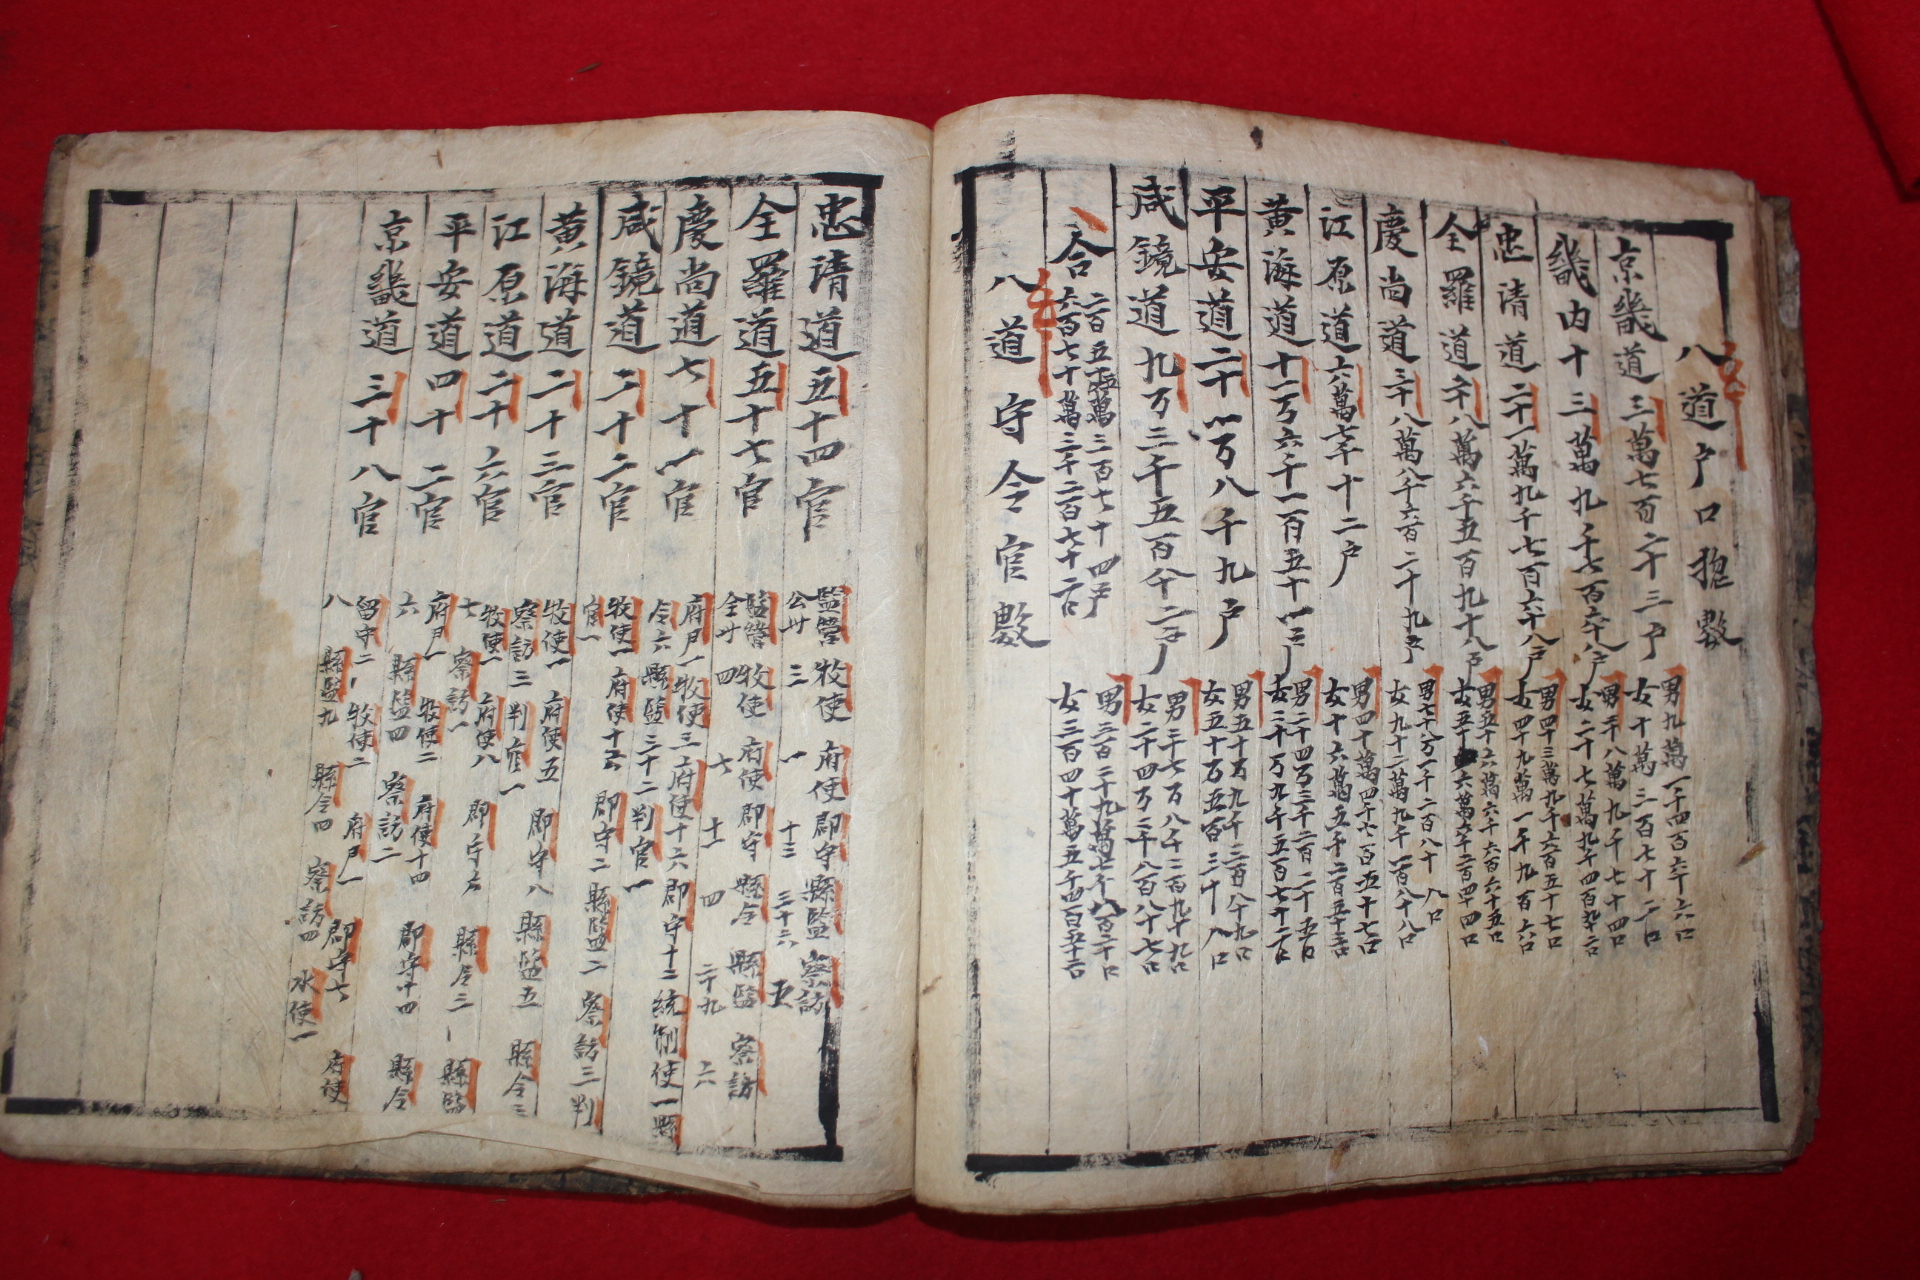 八道戶口摠數
京畿道三萬七百二十三戶 男九萬一千四百六十六口
女十萬三百七十二口
畿內十三萬九千七百六十八戶 男二十八萬九千七十四口
女二十七萬九千四百九十二口
忠清道二十一萬九千七百六十八戶 男四十三萬九千六百五十七口
女四十九萬一千九百六口
全羅道 八萬六千五百九十八戶 男五十六萬六千六百六十五口
慶尚道三十八萬八千六百二十九戶 男七十八万一千二百八十八口
女九十二萬九千一百八十八口
江原道六萬七千十二戶 男四十萬四千六百五十七口
女十六萬五千二百五十三口
黃海道十一万六千一百五十 戶 男二十四万三千二百二十五口
女二十万九千五百七十二口
平安道二十 万八千九戶 男五十万九千二百八十九口
女五十万五百三十八口
咸鏡道九万三千五百 十二戶 男三十七万八千二百九十九口
女二十四万二千八百八十七口
合 二百五十五萬三百七十四戶
六百七十萬三千二百七十二口 男三百二十九萬 口
女三百四十萬五千四百五十二口
八道守令官數
忠清道五十四官 監營 牧使 府使 郡守 縣監 察訪
公州 三 一 十三 三十六 五
全羅道五十七官 監營 牧使 府使 郡守 縣令 縣監 察訪
全州 四 七 十一 四 二十九 六
慶尚道七十一官 府尹一 牧使三 府使十六 郡守十二 統制使一 縣
令六 縣監三十二 判官一
咸鏡道二十二官 牧使一 府使十五 郡守二 縣監二 察訪三 判
官一
黃海道二十三官 牧使一 府使五 郡守八 縣監五 縣令二
察訪三 判官一
江原道二十六官 牧使一 府使八 郡守六 縣令三 縣監
七 察訪一
平安道四十二官 府尹一 牧使二 府使十四 郡守十四 縣令
六 縣監四 察訪二
京畿道三十八官 留守二 牧使二 府尹一 郡守七 府使
八 縣監九 縣令四 察訪四 水使一